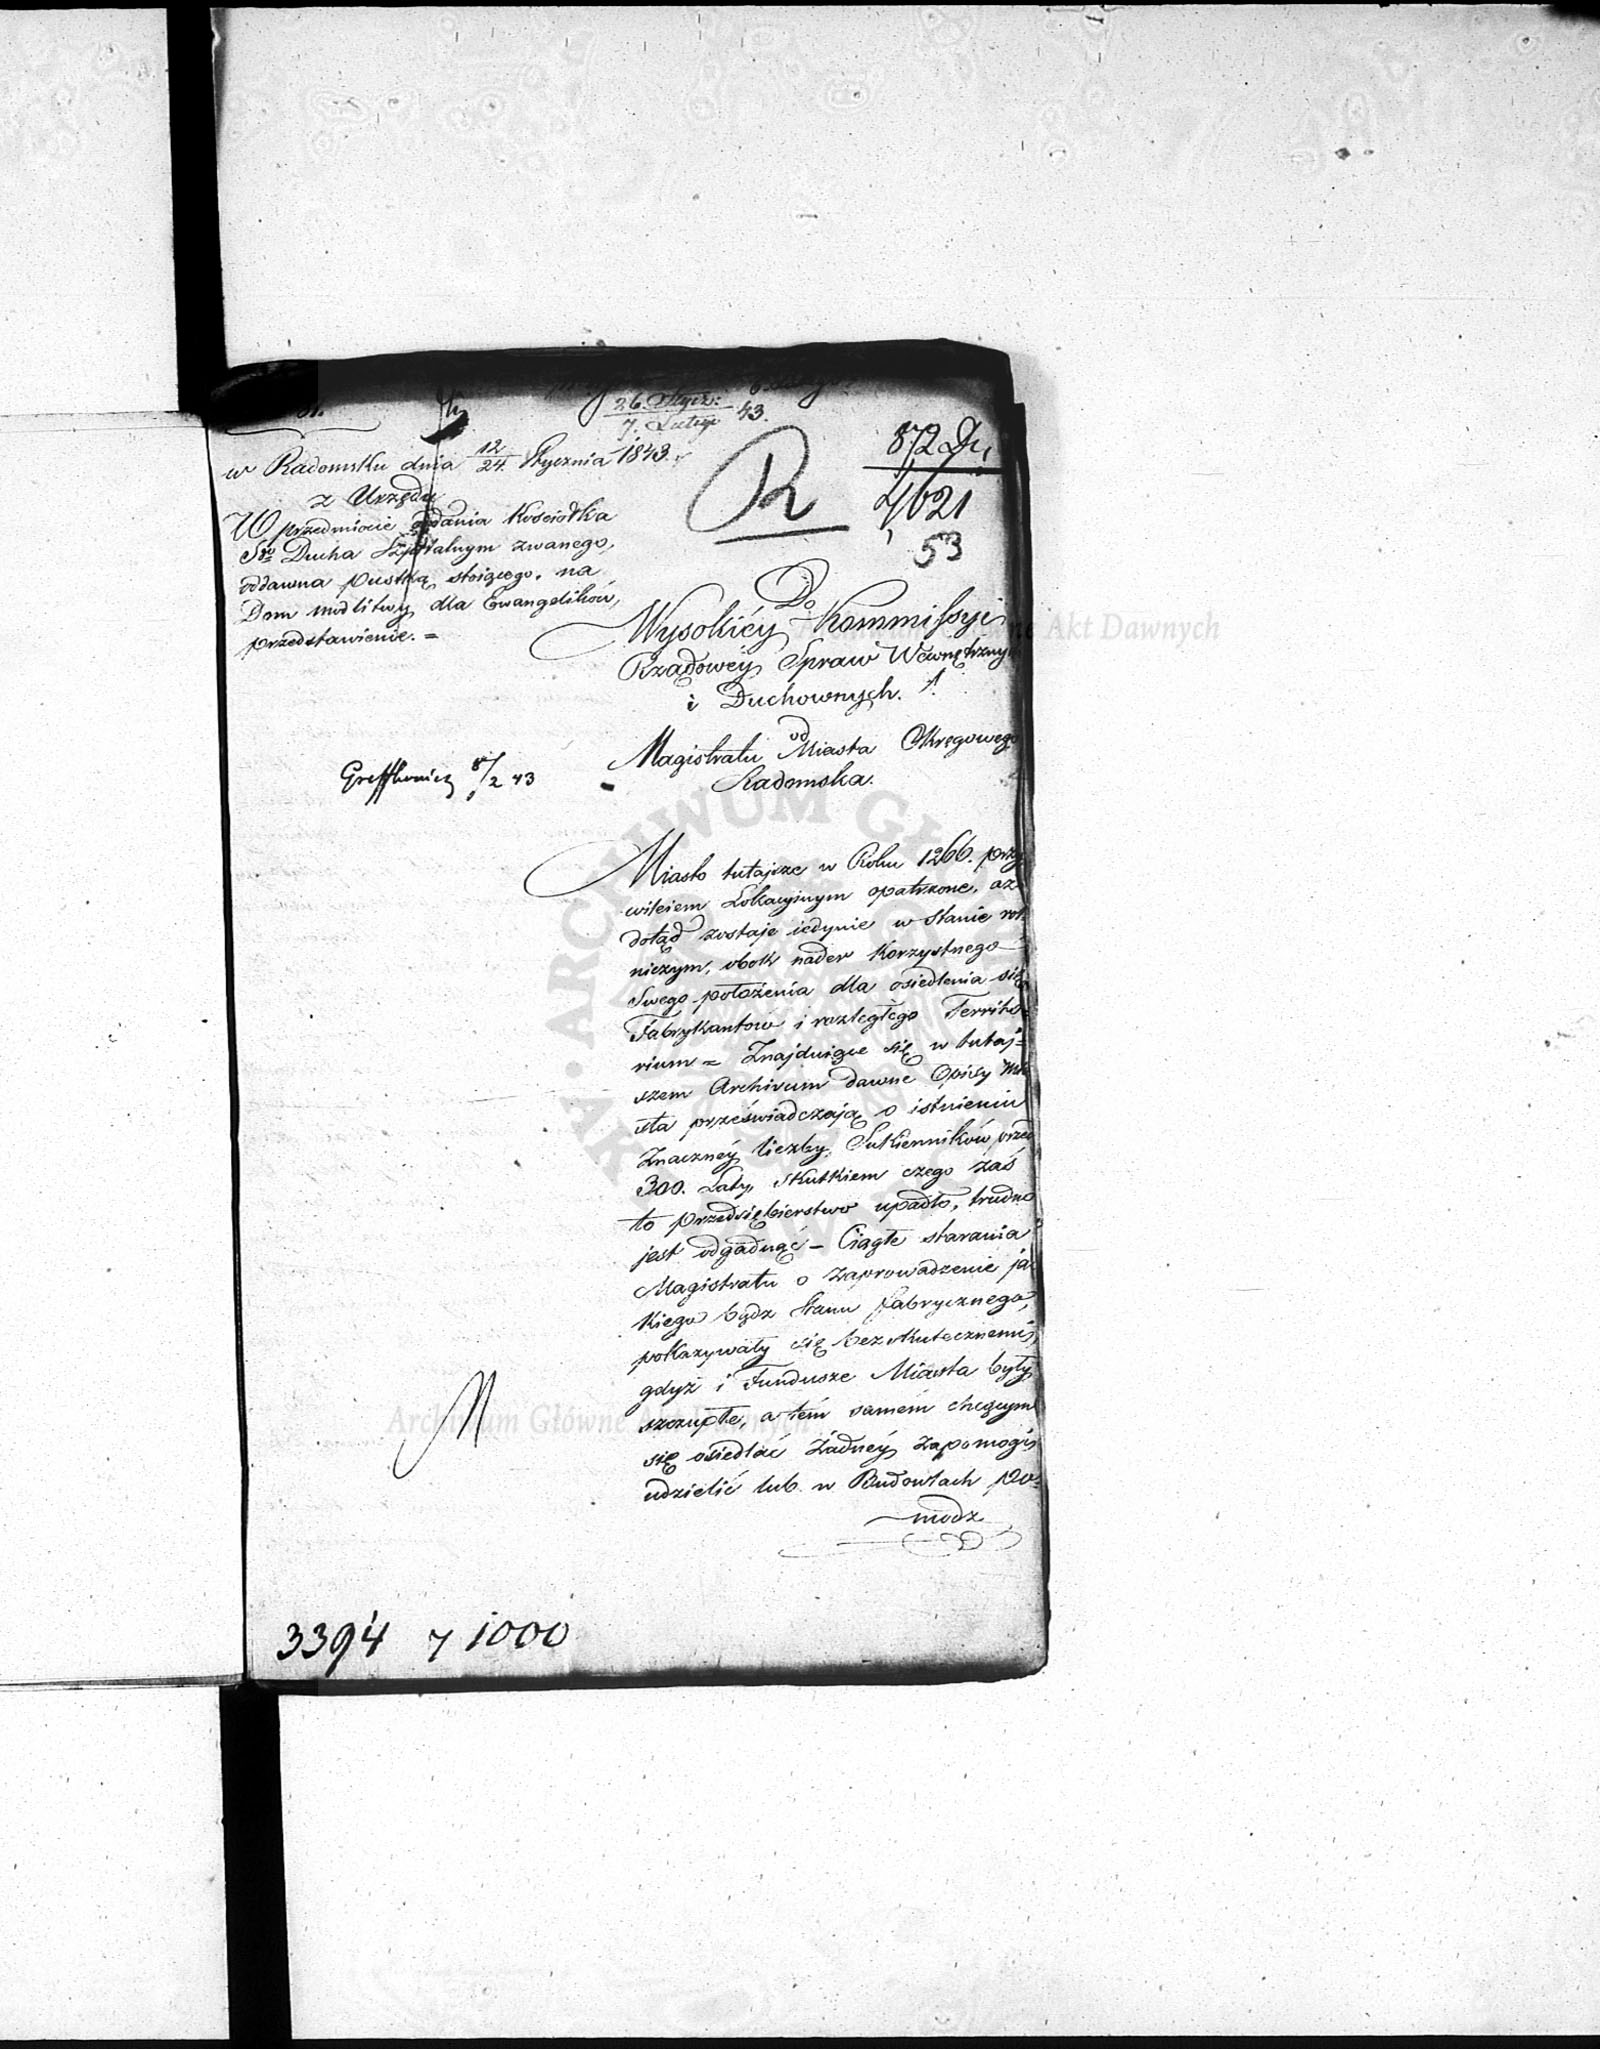 26. Stycz: 43.
7. Lutego
w Radomsku dnia 12/24. Stycznia 1843.
z Urzędu
W przedmiocie oddania Kosciołka
Sgo Ducha Szpitalnym zwanego,
oddawna pustką stoiącego, na
Dom modlitwy dla Ewangelików,
przedstawienie. =
R
872 Du,
4621
53
Do
Wysokiéy Kommissyi
Rządowéy Spraw Wewnętrznych
i Duchownych.
od
Magistratu Miasta Okręgowego
Radomska.
8/2 43
Miasto tutajsze w Roku 1266. przy
wileiem Lokacyinym opatrzone, aż
dotąd zostaje iedynie w stanie rol
niczym, obok nader korzystnego
Swego położenia dla osiedlenia się
Fabrykantów i rozległego Territo=
rium = Znajduiące się w tutaj=
szem Archivum dawne Opisy Mia
sta przeświadczają o istnieniu
Znacznéy liczby Sukienników przed
300. Laty, skutkiem czego zaś
to przedsiębierstwo upadło, trudno
jest odgadnąć – Ciągłe starania
Magistratu o zaprowadzenie ja
kiego bądz stanu fabrycznego,
pokazywały się bezskutecznemi,
gdyż i Fundusze Miasta były
szczupłe, a tém samém chcącym
się osiedlać żadnéy zapomogi
udzielić lub w Budowlach po=
módz
M
3394 7 1000
Archiwum Główne Akt Dawnych
Archiwum Główne Akt Dawnych